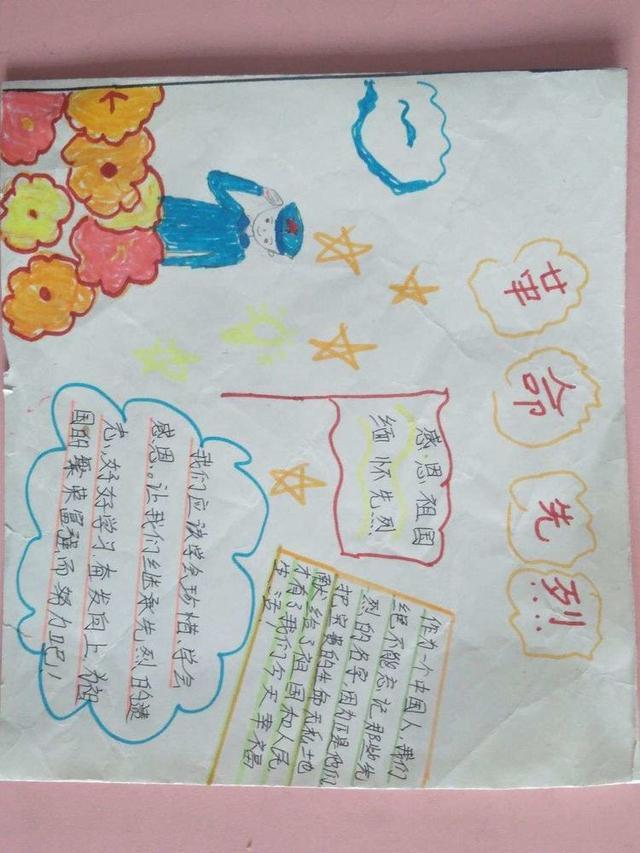 革命先烈!!
感恩祖国
缅怀先烈
作为一个中国人,我们
绝不能忘记那些先
烈的名字,因为正是他们
把宝贵的生命无私地
献给了祖国和人民,
才有了我们今天幸福
生活!
我们应该学会珍惜、学会
感恩。让我们继承先烈的遗
志,好好学习、奋发向上、为祖
国的繁荣富强而努力吧!